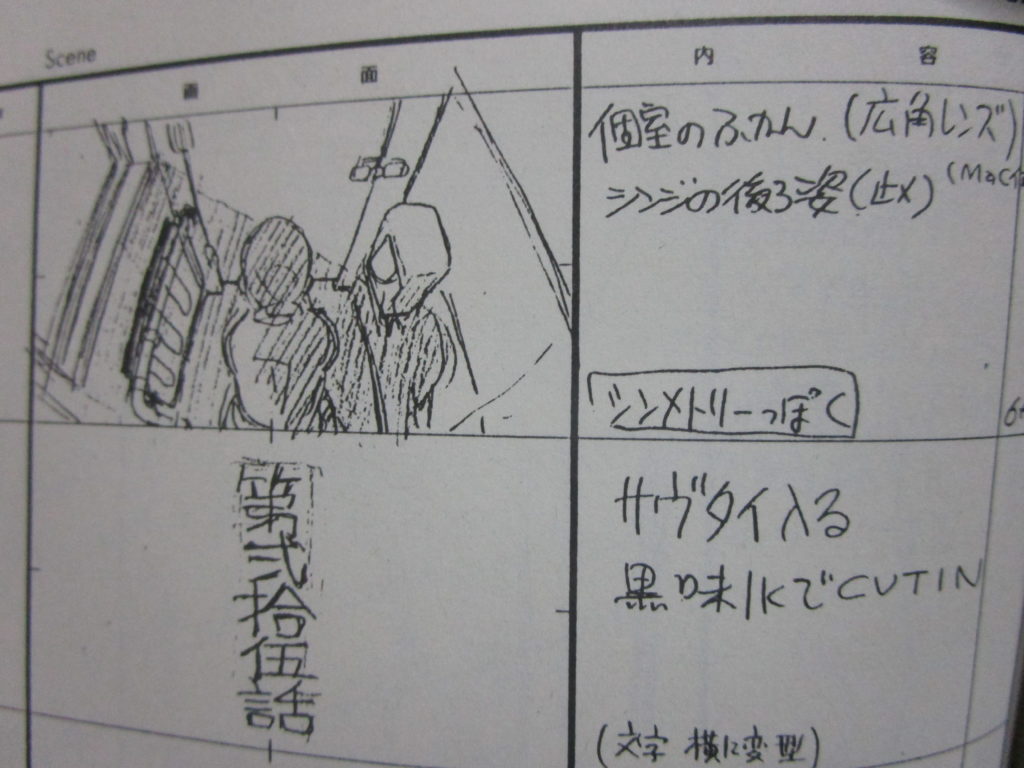 Scene
画 面
内 容
個室のふかん.(広角レンズ)
シンジの後ろ姿(止メ)
(Mac
シンメトリーっぽく
6
第弐拾伍話
サヴタイ入る
黒味1KでCUTIN
(文字 横に変型)